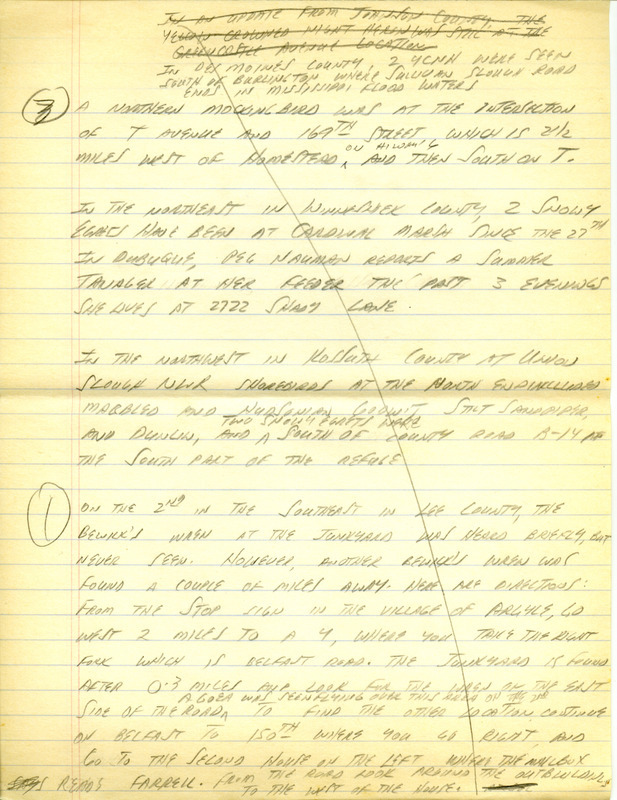 IN AN UPDATE FROM JOHNSON COUNTY, THE
YELLOW-CROWNED NIGHT HERON WAS STILL AT THE
GREENCASTLE AVENUE LOCATION
IN DES MOINES COUNTY, 2 YCNH WERE SEEN
SOUTH OF BURLINGTON WHERE SULLIVAN SLOUGH ROAD
ENDS IN MISSISSIPPI FLOOD WATERS
3 A NORTHERN MOCKINGBIRD WAS AT THE INTERSECTION
OF T AVENUE AND 169TH STREET, WHICH IS 2 1/2
MILES WEST OF HOMESTEAD ON HIWAY 6 AND THEN SOUTH ON T.
IN THE NORTHEAST IN WINNESHIEK COUNTY, 2 SNOWY
EGRETS HAVE BEEN AT CARDINAL MARSH SINCE THE 27TH
IN DUBUQUE, PEG NAUMAN REPORTS A SUMMER
TANAGER AT HER FEEDER THE PAST 3 EVENINGS
SHE LIVES AT 2722 SHADY LANE.
IN THE NORTHWEST IN KOSSUTH COUNTY AT UNION
SLOUGH NWR SHOREBIRDS AT THE NORTH END INCLUDED
MARBLED AND HUDSONIAN GODWIT, STILT SANDPIPER,
AND DUNLIN, AND TWO SNOWY EGRETS WERE SOUTH OF COUNTY ROAD B-14 AT
THE SOUTH PART OF THE REFUGE
1 ON THE 2ND IN THE SOUTHEAST IN LEE COUNTY, THE
BEWICK'S WREN AT THE JUNKYARD WAS HEARD BRIEFLY, BUT
NEVER SEEN. HOWEVER, ANOTHER BEWICK'S WREN WAS
FOUND A COUPLE OF MILES AWAY. HERE ARE DIRECTIONS:
FROM THE STOP SIGN IN THE VILLAGE OF ARGYLE, GO
WEST 2 MILES TO A Y, WHERE YOU TAKE THE RIGHT
FORK WHICH IS BELFAST ROAD. THE JUNKYARD IS FOUND
AFTER 0.3 MILES AND LOOK FOR THE WREN ON THE EAST
SIDE OF THE ROAD, A GOEA WAS SEEN FLYING OVER THIS AREA ON THE 2ND TO FIND THE OTHER LOCATION, CONTINUE
ON BELFAST TO 150TH WHERE YOU GO RIGHT, AND
GO TO THE SECOND HOUSE ON THE LEFT WHERE THE MAILBOX
READS FARRELL. FROM THE ROAD LOOK AROUND THE OUTBUILDINGS
TO THE WEST OF THE HOUSE.